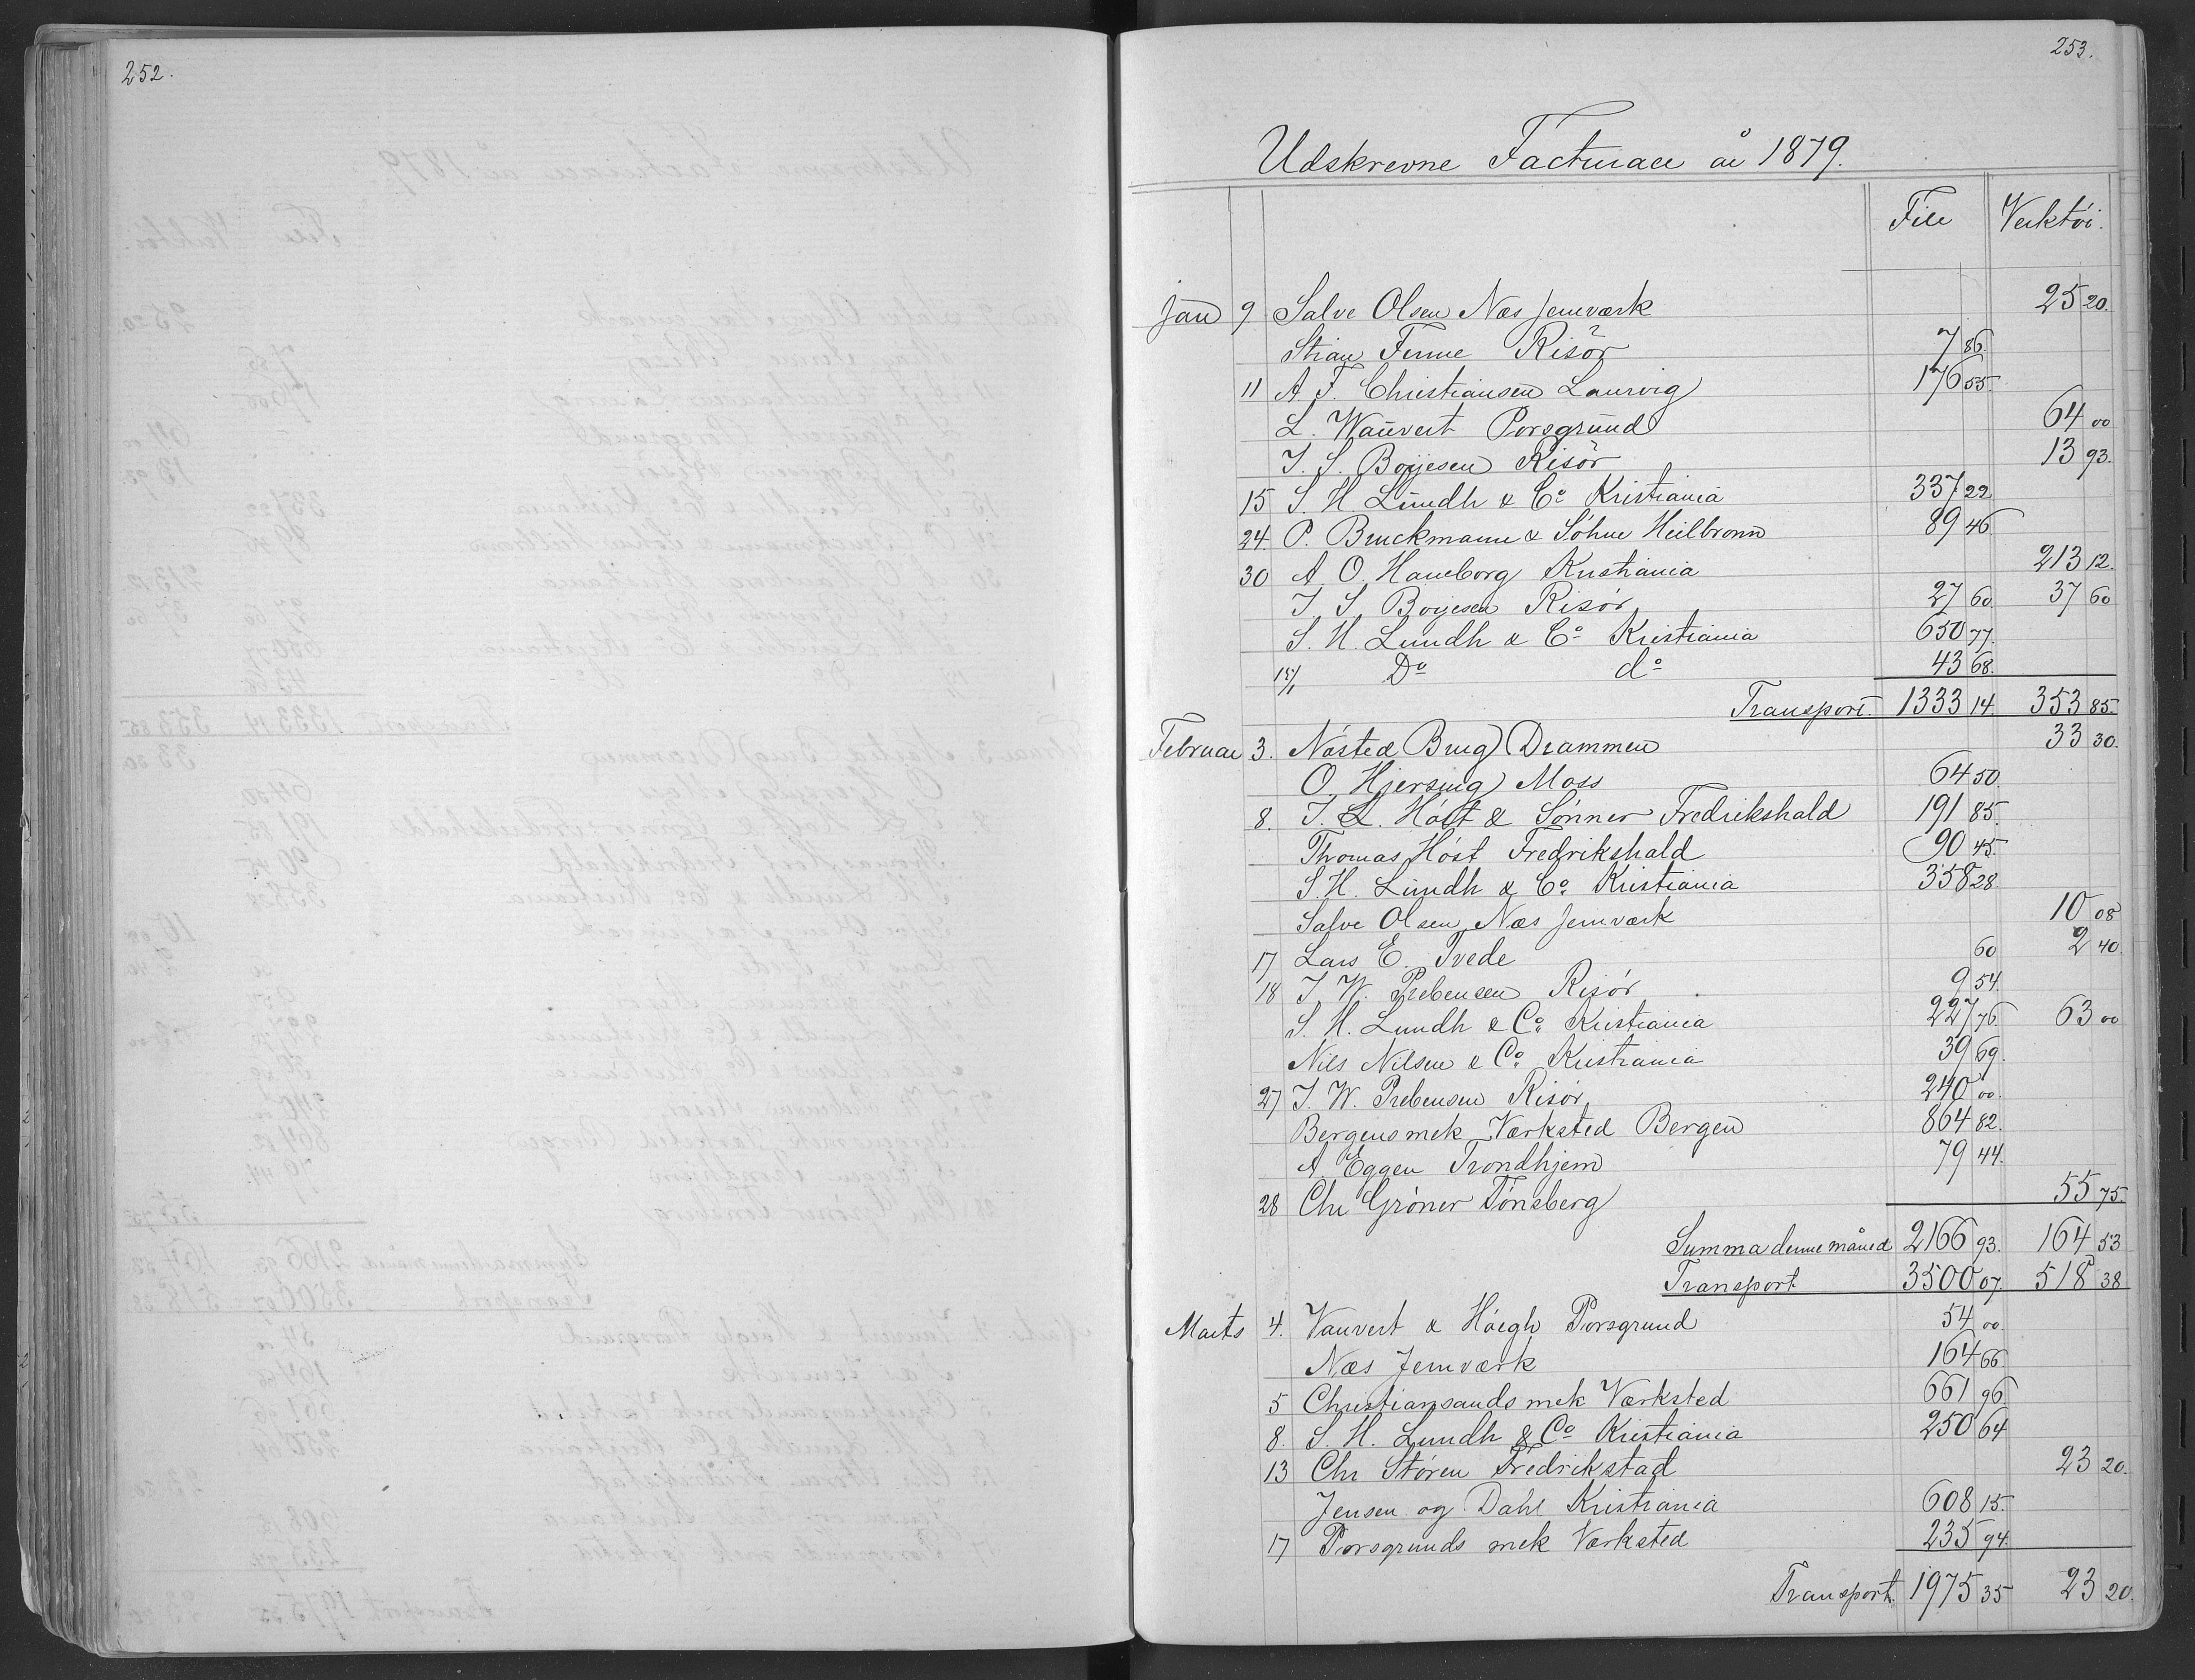 252.
253.
Udskrevne Facturaer år 1879.
File Verktöi.
Jan 9 Salve Olsen Næs Jernværk 25 20.
Stian Finne Risör 7 86.
11 A. F. Christiansen Laurvig 176 55.
L. Wauvert Porsgrund 64 00
J. S. Boyesen Risör 13 93.
15 S. H. Lundh & Co Kristiania 337 22
24. P. Bruckmann & Söhne Heilbronn 89 46.
30 A. O. Haneborg Kristiania 213 12.
J. S. Boyesen Risör 27 60. 37 60
S. H. Lundh & Co Kristiania 650 77.
15/1 Do do 43 68.
Transport. 1333 14. 353 85.
Februar 3. Nøsted Brug Drammen 33 30.
O. Hjersing Moss 64 50.
8. J. L. Höst & Sønner Fredrikshald 191 85.
Thomas Höst Fredrikshald 90 45.
S. H. Lundh & Co Kristiania 358 28
Salve Olsen Næs Jernværk 10 08
17 Lars E. Tvede 60 2 40.
18 J. W. Prebensen Risör 9 54.
S. H. Lundh & Co Kristiania 227 76. 63 00
Nils Nilsen & Co Kristiania 39 69.
27 J. W. Prebensen Risör 240 00.
Bergens mek Værksted Bergen 864 82.
A. Eggen Trondhjem 79 44.
28 Chr Grøner Tönsberg 55 75.
Summa denne måned 2166 93. 164 53
Transport 3500 07. 518 38
Marts 4. Vauvert & Höegh Porsgrund 54 00.
Næs Jernværk 164 66.
5 Christiansands mek Værksted 661 96
8. S. H. Lundh & Co Kristiania 250 64
13 Chr Støren Fredrikstad 23 20.
Jensen og Dahl Kristiania 608 15.
17 Porsgrunds mek Værksted 235 94.
Transport. 1975 35 23 20.